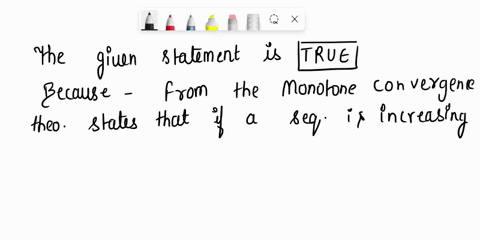 The given statement is TRUE
Because - from the Monotone convergence
theo. states that if a seq. is increasing